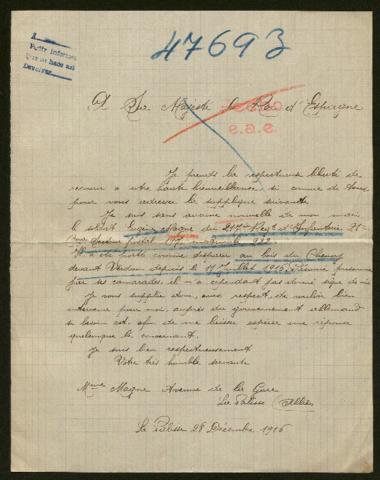 47693
A Sa Majesté le Roi d'Espagne
Je prends la respectueuse liberté de
recourir à votre haute bienveillance si connue de tous
pour vous adresser la supplique suivante
Je suis sans aucune nouvelle de mon mari
le soldat Eugène Magne du Regt d'Infanterie
secteur postal matricule 932
Il a été porté comme disparu au bois du Chenois
devant Verdun depuis le Juillet 1916
par ses camarades, il n'a cependant pas donné signe de vie
Je vous supplie donc, avec respect, de vouloir bien
intervenir pour moi, auprès du gouvernement allemand
si besoin est, afin de me laisser espérer une réponse
quelconque le concernant.
Je suis bien respectueusement
Votre très humble servante
Mme Magne Avenue de la Gare
La Palisse (Allier)
La Palisse 28 Décembre 1916